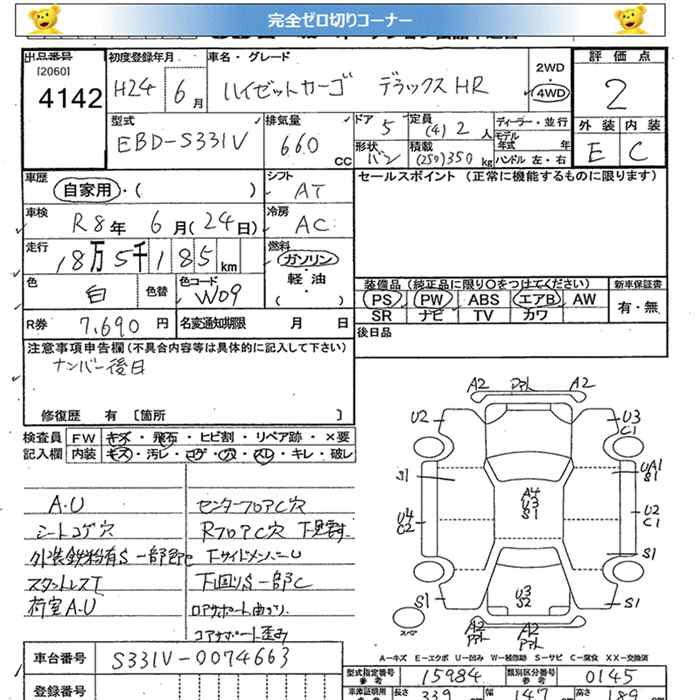 完全ゼロ切りコーナー
出品番号 初度登録年月 車名・グレード 2WD 評価点
[2060]
4142 H24年6月 ハイゼットカーゴ デラックスHR 4WD 2
型式 排気量 ドア 定員 ディーラー・並行 外装 内装
EBD-S331V 660 CC 5 (4) 2人 モデル年式 年 E C
形状 バン 積載 (250)350kg ハンドル 左・右
車歴 シフト セールスポイント (正常に機能するものに限ります)
自家用・( ) AT
車検 R8年6月(24日) 冷房 AC
走行 18万5千185km 燃料 ガソリン
軽油
( )
色 白 色替 色コード W09
装備品(純正品に限り○をつけてください) 新車保証書
PS PW ABS エアB AW 有・無
SR ナビ TV カワ
R券 7,690円 名変通知期限 月 日
後日品
注意事項申告欄(不具合内容等は具体的に記入して下さい)
ナンバー後日
修復歴 有 〔箇所 〕
検査員 FW キズ・飛石・ヒビ割・リペア跡・×要
記入欄 内装 キズ・汚レ・コゲ・穴・スレ・キレ・破レ
A.U センターフロアC穴
シートコゲ穴 RフロアC穴
下サイドメンバーU
下回りS一部C
荷室A.U コアサポート曲がり
コアサポート歪み
A2 A2
U2 U3
C1
S1 UA1
S1
A4
U3
S1
U4
C2
U2
C1
S1
U3
S2
S1 S1
スペア A2 A2
A-キズ E-エクボ U-凹み W-板修跡 S-サビ C-腐食 XX-交換済
車台番号 S331V-0074663
型式指定番号 参考 15984 類別区分番号 参考 0145
登録番号 車庫証明用 長さ 339 幅 147 高さ 189